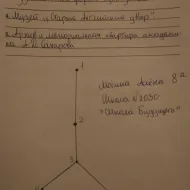 • Музей „Старый Английский двор".
• Архив и мемориальная квартира академи-
ка А. Д. Сахарова
1
2
3
Алёна 8 а
Школа № 2030
"Школа Будущего"